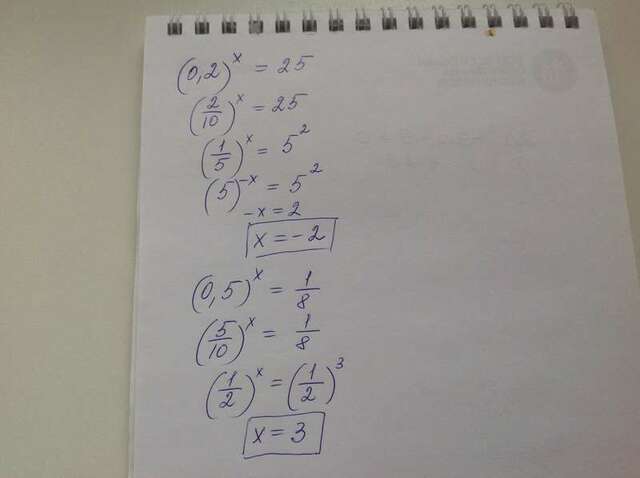 (0,2)^x = 25
(2/10)^x = 25
(1/5)^x = 5^2
(5)^-x = 5^2
-x = 2
x = -2
(0,5)^x = 1/8
(5/10)^x = 1/8
(1/2)^x = (1/2)^3
x = 3